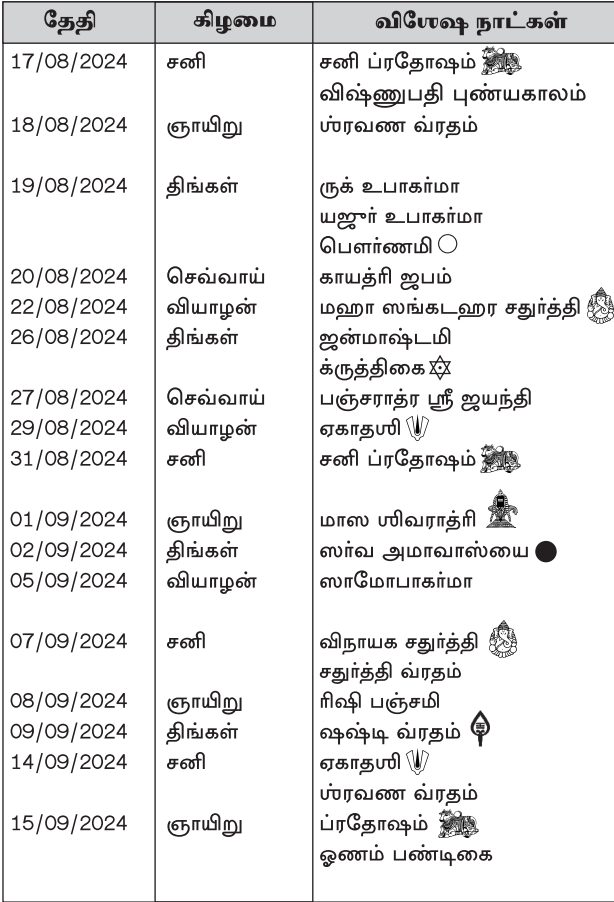 தேதி கிழமை விஶேஷ நாட்கள்
17/08/2024 சனி சனி ப்ரதோஷம்
விஷ்ணுபதி புண்யகாலம்
18/08/2024 ஞாயிறு ஶ்ரவண வ்ரதம்
19/08/2024 திங்கள் ருக் உபாகர்மா
யஜுர் உபாகர்மா
பௌர்ணமி
20/08/2024 செவ்வாய் காயத்ரி ஜபம்
22/08/2024 வியாழன் மஹா ஸங்கடஹர சதுர்த்தி
26/08/2024 திங்கள் ஜன்மாஷ்டமி
க்ருத்திகை
27/08/2024 செவ்வாய் பஞ்சராத்ர ஸ்ரீ ஜயந்தி
29/08/2024 வியாழன் ஏகாதஶி
31/08/2024 சனி சனி ப்ரதோஷம்
01/09/2024 ஞாயிறு மாஸ ஶிவராத்ரி
02/09/2024 திங்கள் ஸர்வ அமாவாஸ்யை
05/09/2024 வியாழன் ஸாமோபாகர்மா
07/09/2024 சனி விநாயக சதுர்த்தி
சதுர்த்தி வ்ரதம்
08/09/2024 ஞாயிறு ரிஷி பஞ்சமி
09/09/2024 திங்கள் ஷஷ்டி வ்ரதம்
14/09/2024 சனி ஏகாதஶி
ஶ்ரவண வ்ரதம்
15/09/2024 ஞாயிறு ப்ரதோஷம்
ஓணம் பண்டிகை